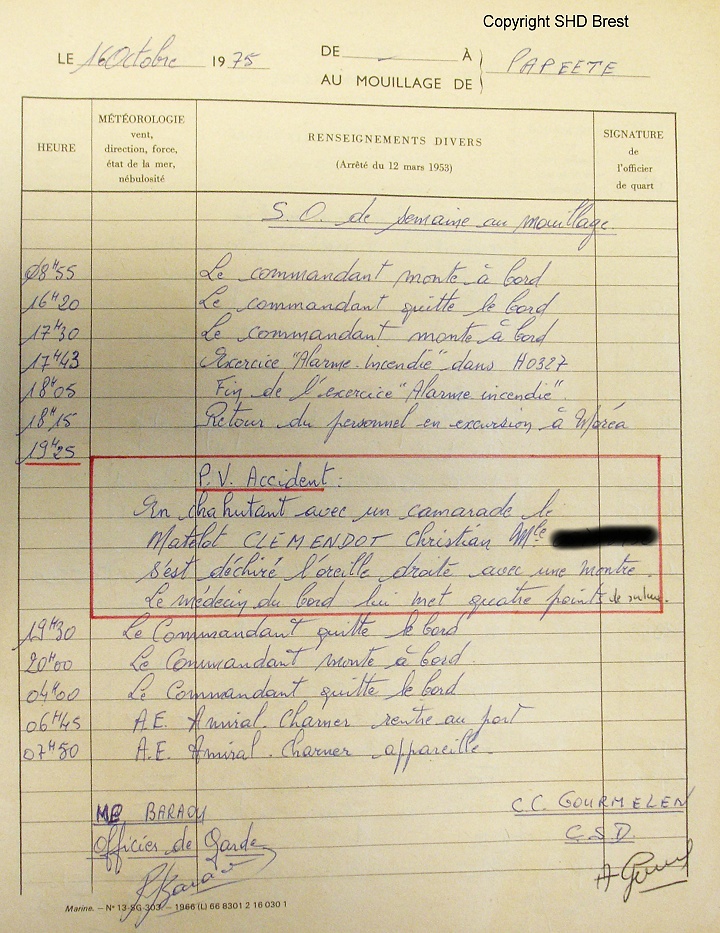 Copyright SHD Brest
LE 16 Octobre 1975 DE - À
AU MOUILLAGE DE PAPEETE
HEURE
MÉTÉOROLOGIE
vent,
direction, force,
état de la mer,
nébulosité
RENSEIGNEMENTS DIVERS
(Arrêté du 12 mars 1953)
SIGNATURE
de
l'officier
de quart
S.O. de semaine au mouillage
08H55 Le commandant monte à bord
16H20 Le commandant quitte le bord
17H30 Le commandant monte à bord
17H43 Exercice "Alarme incendie" dans H0327
18H05 Fin de l'exercice "Alarme incendie".
18H15 Retour du personnel en excursion à Moréa
19H25
P.V. Accident :
En chahutant avec un camarade le
Matelot CLEMENDOT Christian Mle
s'est déchiré l'oreille droite avec une montre.
Le médecin du bord lui met quatre points de suture.
19H30 Le Commandant quitte le bord
20H00 Le Commandant monte à bord.
04H00 Le Commandant quitte le bord
06H45 A.E. Amiral. Charner rentre au port
07H50 A.E. Amiral. Charner appareille.
ME BARAOU
Officier de Garde
C.C. GOURMELEN
C.S.D.
Marine. — N° 13-SG-303 — 1966 (L) 66 8301 2 16 030 1